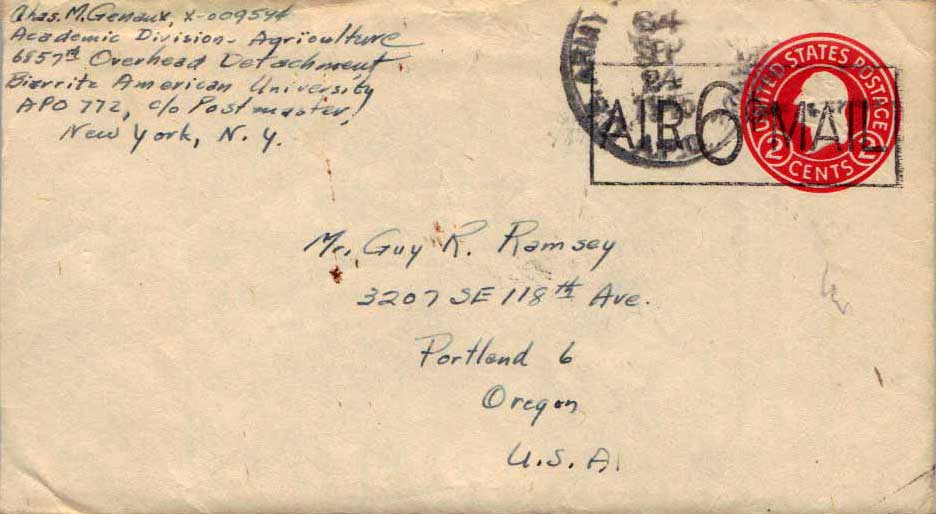 Chas. M. Genaux, X-009594
Academic Division - Agriculture
6857th Overhead Detachment
Biarritz American University
APO 772, c/o Postmaster,
New York, N. Y.
ARMY
SEP
24
AIR 6¢ MAIL
UNITED STATES POSTAGE
2 CENTS 2
Mr. Guy R. Ramsey
3207 SE 118th Ave.
Portland 6
Oregon
U.S.A.